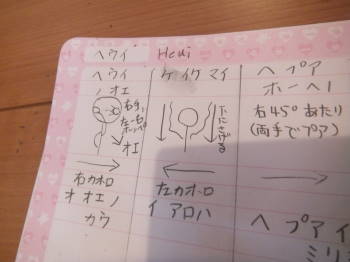 ヘウイ Heui
ヘウイ
ノオエ
右手
オエ
右カホロ
オオエノ
カウ
ケイケマイ
下にさげる
左カホロ
イアロハ
ヘプア
ホーヘノ
右45°あたり
(両手でプア)
ヘプアイ